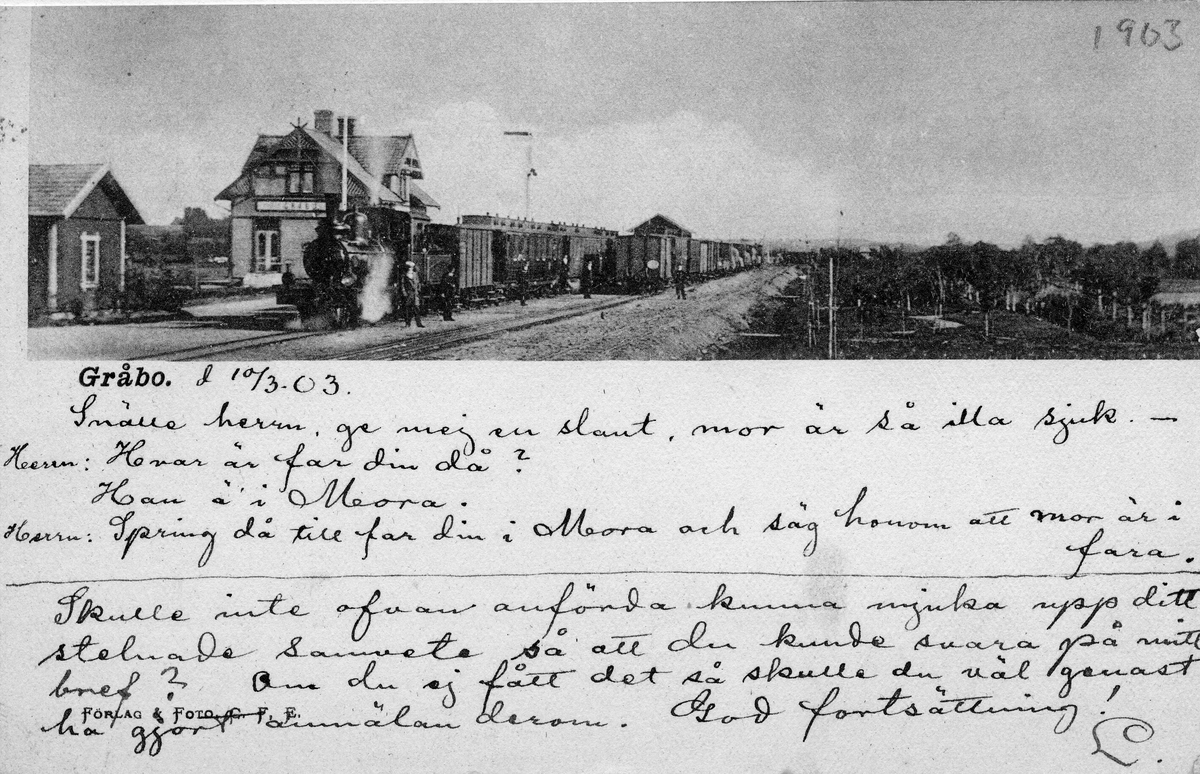 1903
GRÅBO
Gråbo. d 10/3-03.
Snälle herrn, ge mej en slant, mor är så illa sjuk. —
Herrn: Hvar är far din då?
Han ä' i Mora.
Herrn: Spring då till far din i Mora och säg honom att mor är i
fara.
Skulle inte ofvan anförda kunna mjuka upp ditt
stelnade samvete så att du kunde svara på mitt
bref? Om du ej fått det så skulle du väl genast
FÖRLAG & FOTO. C. F. F.
ha gjort anmälan derom. God fortsättning!
L.